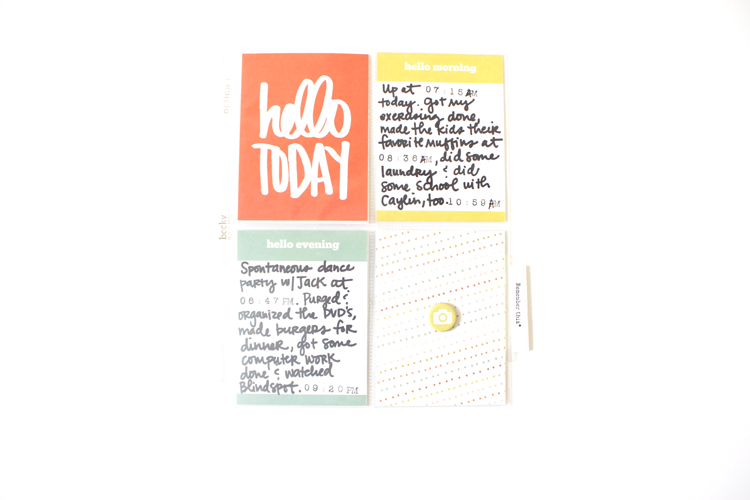 hello
TODAY
hello morning
Up at 07:15AM
today. Got my
exercising done,
made the kids their
favorite muffins at
08:36AM, did some
laundry & did
some school with
Caylin, too. 10:59AM
hello evening
Spontaneous dance
party w/ Jack at
06:47PM. Purged &
organized the DVD's,
made burgers for
dinner, got some
computer work
done & watched
Blindspot. 09:20PM
Remember this*
becky